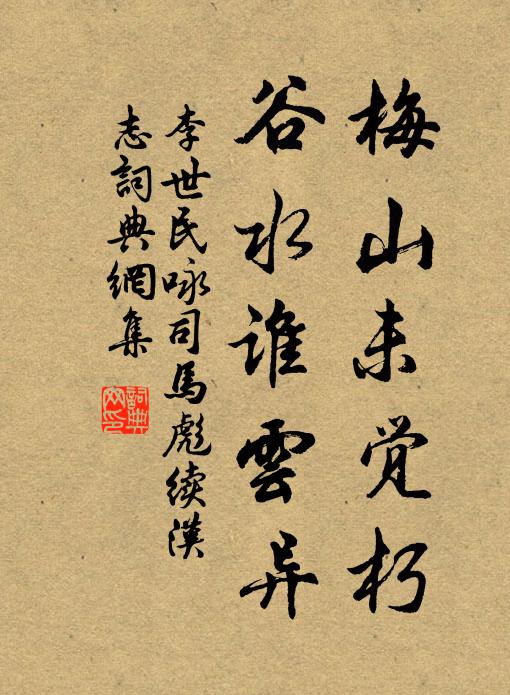 梅山未觉朽
谷水谁雲异
李世民咏司馬彪续漢
志詞典網集
詞典
网印